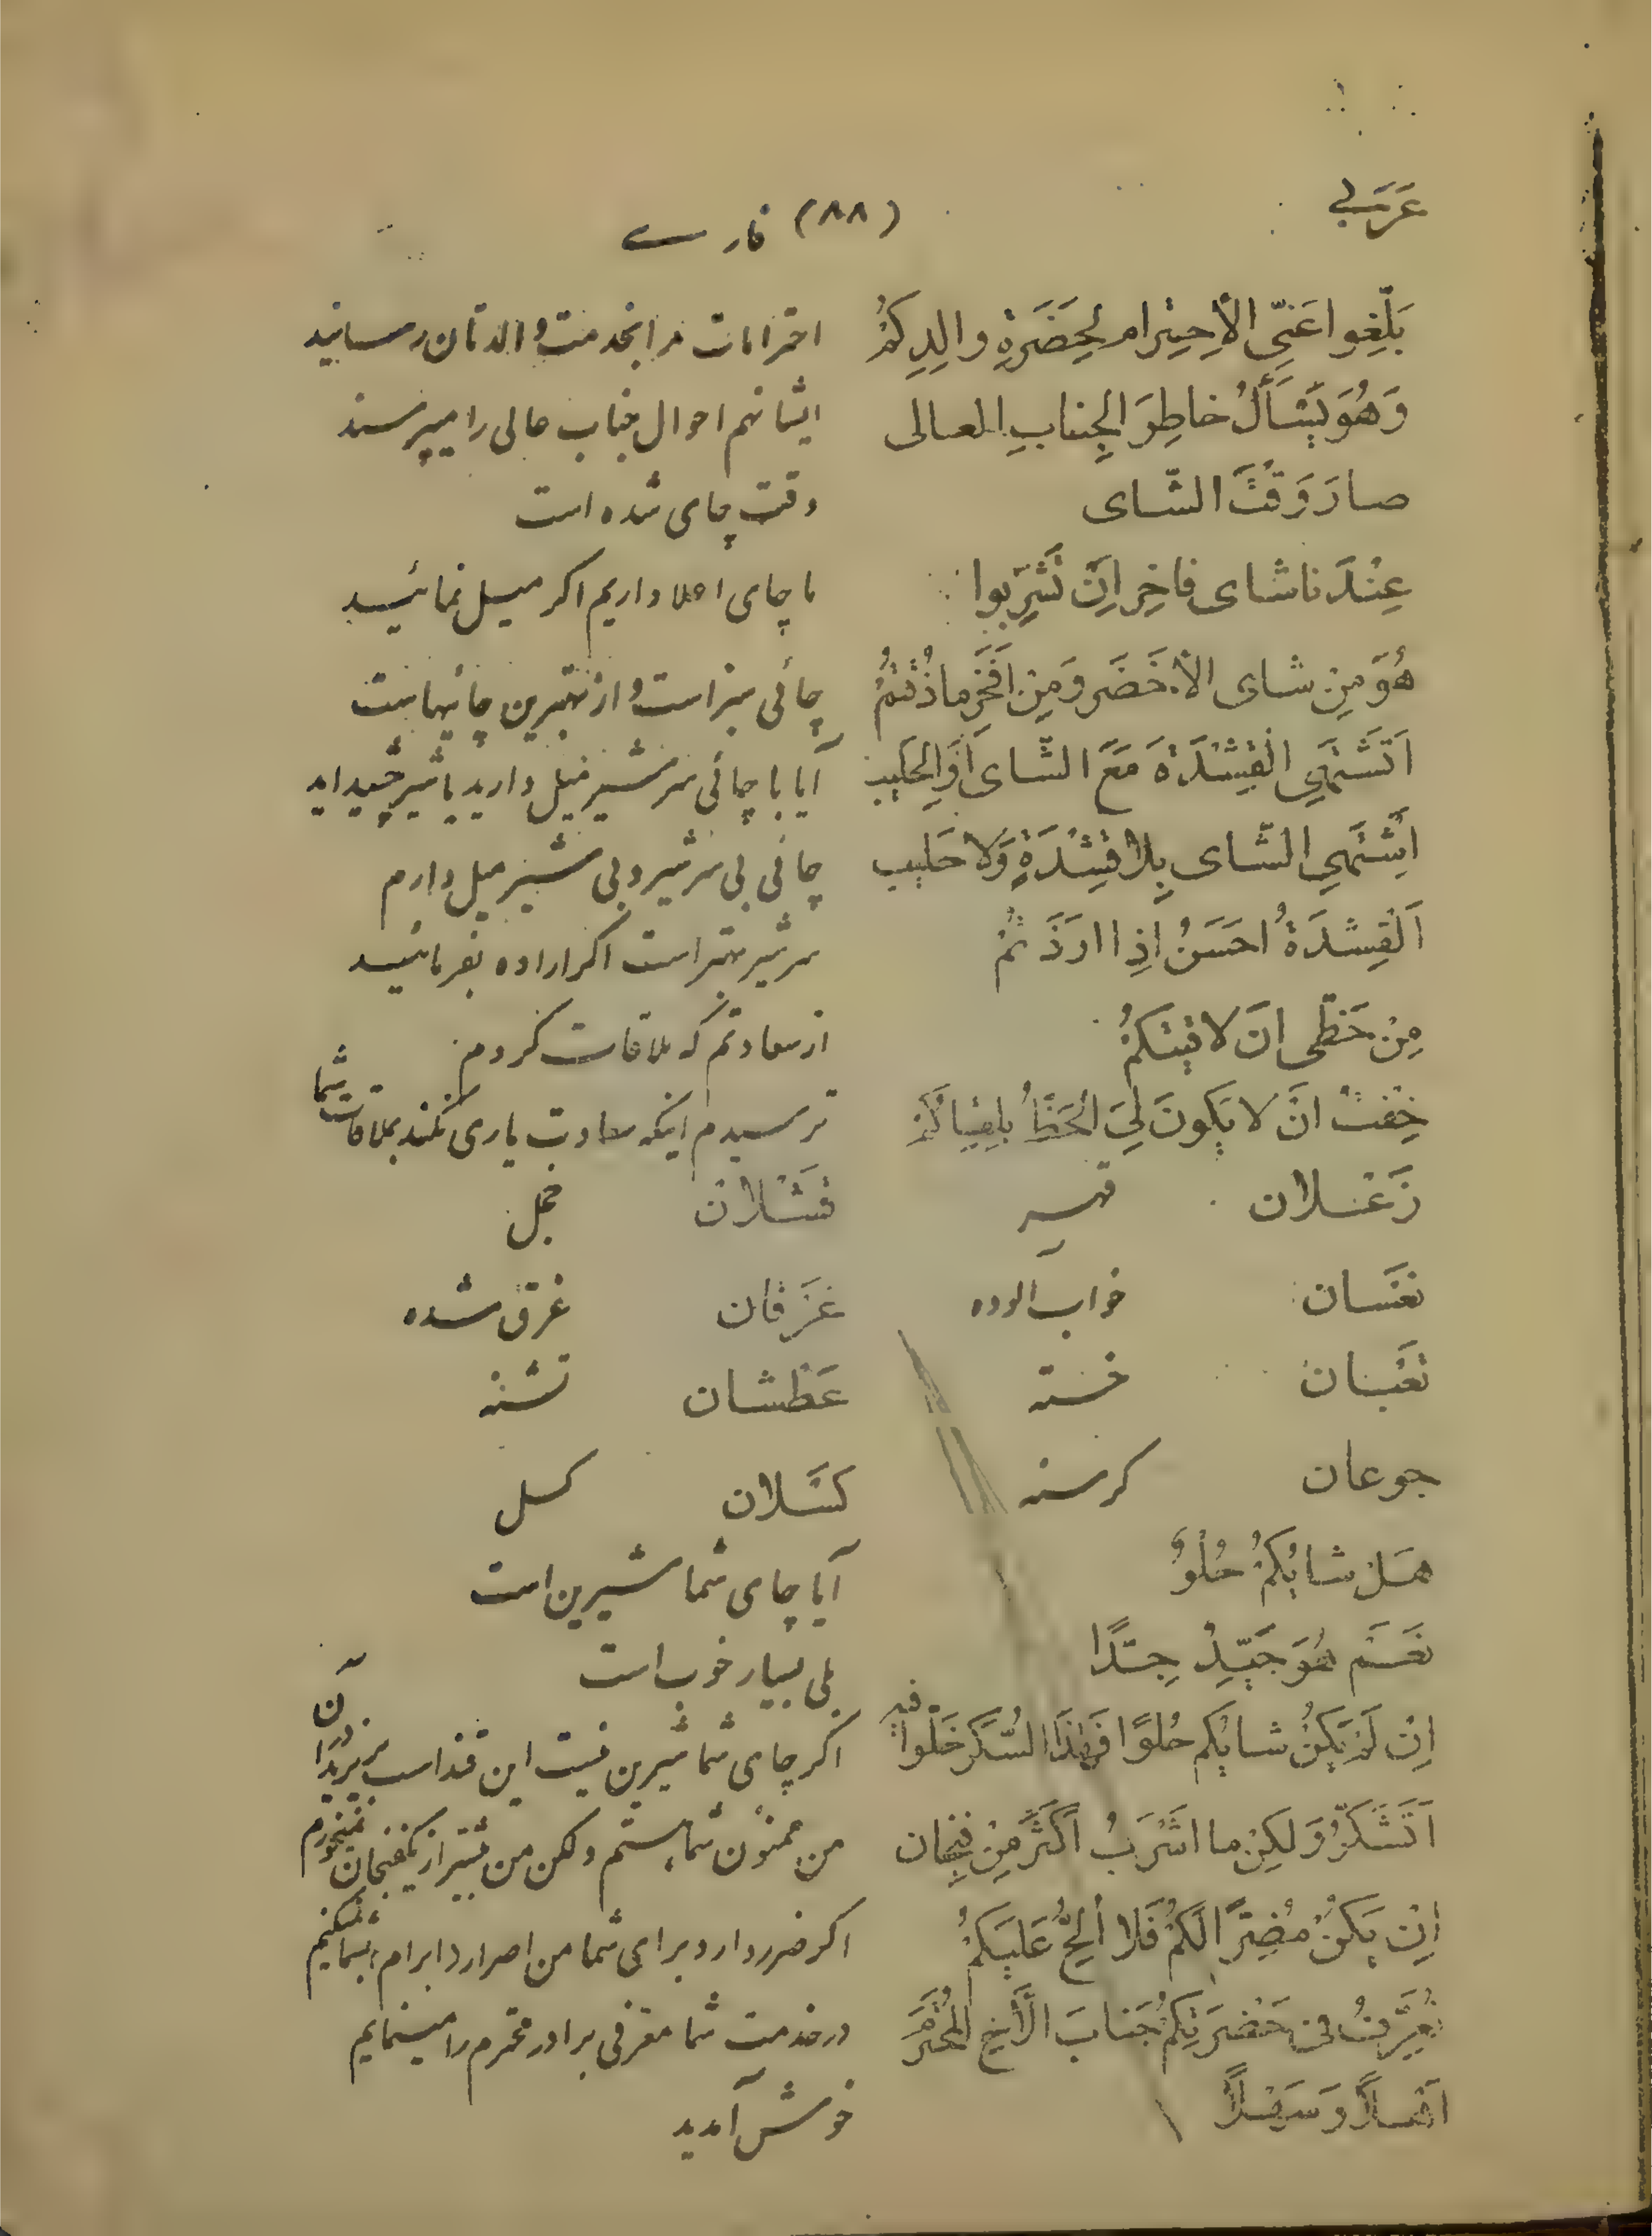 عَرَبی (۸۸) فارسے
بَلِّغِوا عَنِّی الأِحتِرام لِحَضَرَةِ والِدِکُمْ احترامات مرا بخدمت والدتان رسانید
وَهُوَ یَسْأَلُ خاطِرَ الجِنابِ العالی ایشانهم احوال جناب عالی را میپرسند
صارَ وَقْتَ الشّای وقت چای شده است
عِنْدَنا شای فاخِر اِنْ تَشْرِبوا ما چای اعلا داریم اگر میل نمائید
هُوَ مِن شای الأخَضَر وَمِن اَفْخَرِ ماذُقْتُمُ چائی سبز است و از بهترین چائیهاست
اَتَشْتَهِی الْقِشْدَةَ مَعَ الشّای اَوِالحَلیب آیا با چائی سرشیر میل دارید یا شیر
اَشْتَهِی الشّای بِلا قِشْدَةٍ وَلا حَلیب چائی بی سرشیر و بی شیر میل دارم
اَلْقِشدَةُ احسَنُ اذِا ارَدْتُمْ سرشیر بهتر است اگر اراده بفرمائید
مِنْ حَظّی انَ لاقَیْتکُمُ از سعادتم که ملاقات کردم
خِفْتُ انَّ لا یَکونَ لِیَ الحَظُّ بِلِقیاکُمْ ترسیدم اینکه سعادت یاری نکند بملاقات شما
زَعْلان قهر فَشْلان خجل
نَعْسان خواب الوده غَرْقان غرق شده
تَعْبان خسته عَطْشان تشنه
جوعان کرسنه کَسْلان کسل
هَلْ شایُکُمْ حُلْوٌ آیا چای شما شیرین است
نَعَم هُوَ جَیِّدْ جِدًّا بلی بسیار خوب است
اِنْ لَمْ یَکُنْ شایُکم حُلوًا فَهٰذَا السُّکَر حَلّوا فیه اگر چای شما شیرین نیست این قند است بریزید در آن
اَتَشَکَّرُ وَلکِنْ ما اشْرَبُ اَکْثَر مِنْ فِنجان من ممنون شما هستم ولکن من بیشتر از یکفنجان نمیخورم
اِنْ یَکُنْ مُضِرًّا لَکُمْ فَلا اُلِحُّ عَلَیکُمْ اگر ضرر دارد برای شما من اصرار و ابرام بشما نمیکنم
نُعَرِّفُ فی حَضْرَتِکُمْ جَنابَ الأَخِ المُحْتَرَمَ در خدمت شما معرفی برادر محترم را مینمایم
اَهْلاً وَسَهْلاً خوش آمدید